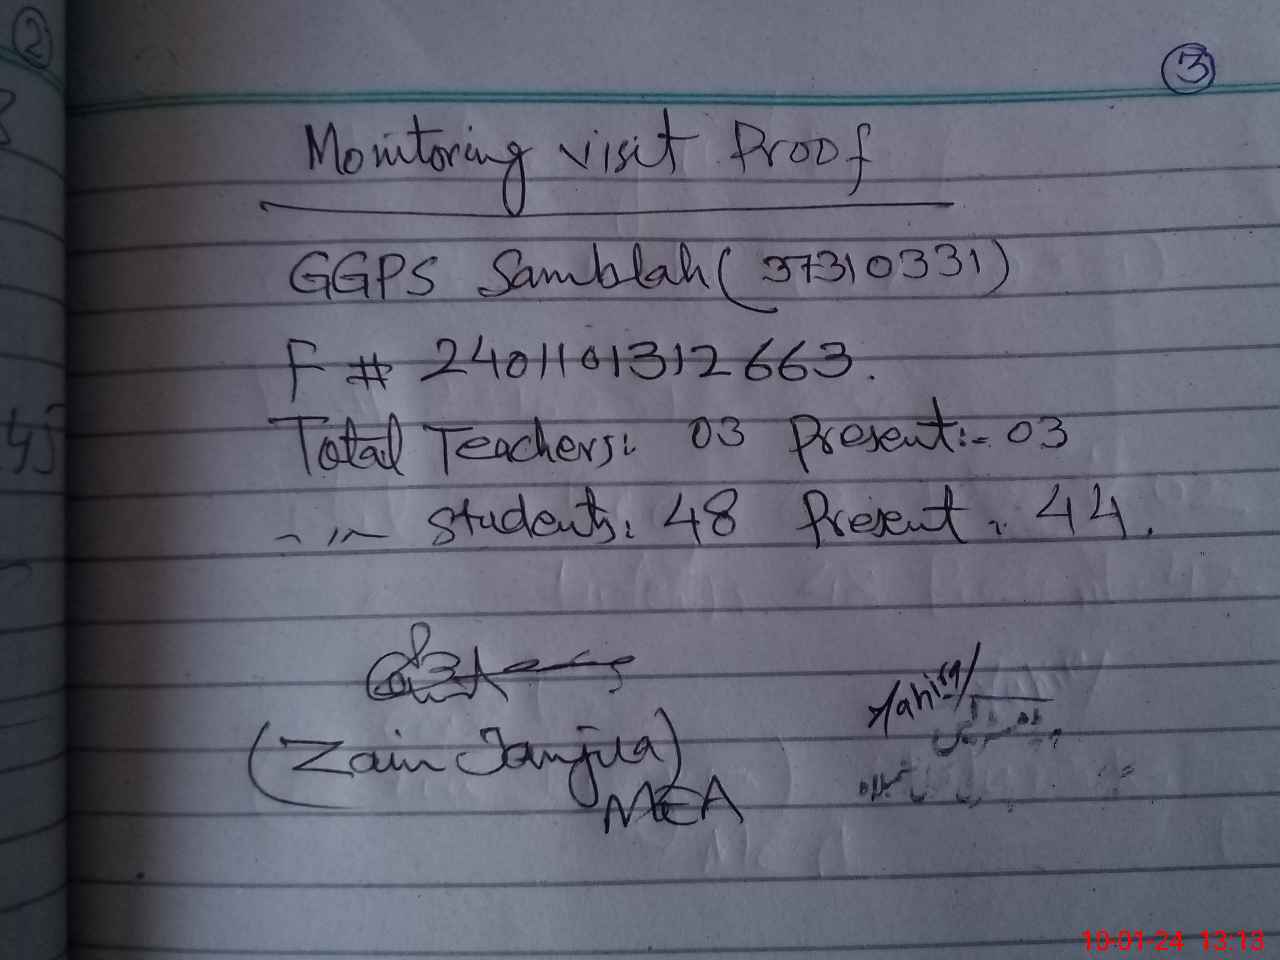 3
Monitoring visit Proof
GGPS Samblah (37310331)
F # 2401101312663.
Total Teachers: 03 Present:- 03
-11- students: 48 Present: 44.
Tahira
(Zain Janjua)
MEA
2
10-01-24 13:13